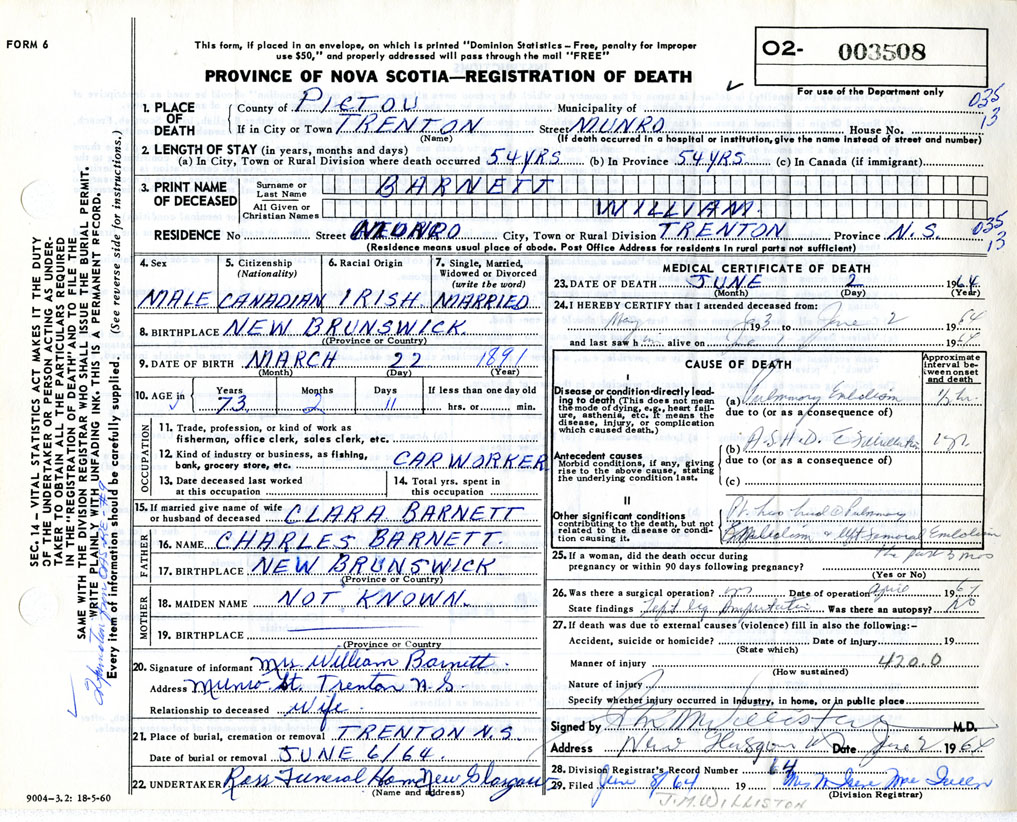 FORM 6
This form, if placed in an envelope, on which is printed "Dominion Statistics – Free, penalty for improper
use $50," and properly addressed will pass through the mail "FREE"
PROVINCE OF NOVA SCOTIA—REGISTRATION OF DEATH
O2- 003508
For use of the Department only
035
13
1. PLACE OF DEATH
County of PICTOU Municipality of
If in City or Town TRENTON Street MUNRO House No.
(Name) (If death occurred in a hospital or institution, give the name instead of street and number)
2. LENGTH OF STAY (in years, months and days)
(a) In City, Town or Rural Division where death occurred 54 YRS (b) In Province 54 YRS. (c) In Canada (if immigrant)
3. PRINT NAME OF DECEASED
Surname or Last Name BARNETT
All Given or Christian Names WILLIAM.
RESIDENCE No Street MUNRO City, Town or Rural Division TRENTON Province N.S.
035
13
(Residence means usual place of abode. Post Office Address for residents in rural parts not sufficient)
4. Sex
MALE
5. Citizenship (Nationality)
CANADIAN
6. Racial Origin
IRISH
7. Single, Married, Widowed or Divorced (write the word)
MARRIED
8. BIRTHPLACE NEW BRUNSWICK
(Province or Country)
9. DATE OF BIRTH MARCH 22 1891
(Month) (Day) (Year)
10. AGE in Years Months Days If less than one day old
73 2 11 hrs. or min.
OCCUPATION
11. Trade, profession, or kind of work as
fisherman, office clerk, sales clerk, etc.
12. Kind of industry or business, as fishing,
bank, grocery store, etc. CAR WORKER
13. Date deceased last worked at this occupation
14. Total yrs. spent in this occupation
15. If married give name of wife
or husband of deceased CLARA BARNETT
FATHER
16. NAME CHARLES BARNETT.
17. BIRTHPLACE NEW BRUNSWICK
(Province or Country)
MOTHER
18. MAIDEN NAME NOT KNOWN.
19. BIRTHPLACE
(Province or Country)
20. Signature of informant Mrs William Barnett.
Address Munro St. Trenton N.S.
Relationship to deceased Wife
21. Place of burial, cremation or removal TRENTON N.S.
Date of burial or removal JUNE 6/64.
22. UNDERTAKER Ross Funeral Home New Glasgow
(Name and address)
MEDICAL CERTIFICATE OF DEATH
23. DATE OF DEATH JUNE 2 1964
(Month) (Day) (Year)
24. I HEREBY CERTIFY that I attended deceased from:
May 1963 to June 2 1964
and last saw him alive on June 1 1964
CAUSE OF DEATH
Approximate interval between onset and death
I
Disease or condition directly leading to death (This does not mean the mode of dying, e.g., heart failure, asthenia, etc. It means the disease, injury, or complication which caused death.)
(a) Pulmonary Embolism ½ hr.
due to (or as a consequence of)
Antecedent causes
Morbid conditions, if any, giving rise to the above cause, stating the underlying condition last.
(b) A.S.H.D.
due to (or as a consequence of)
(c)
II
Other significant conditions contributing to the death, but not related to the disease or condition causing it.
Pt. has had Pulmonary
Embolism Femoral Embolism
the past 3 mos
25. If a woman, did the death occur during
pregnancy or within 90 days following pregnancy?
(Yes or No)
26. Was there a surgical operation? yes Date of operation April 1964
State findings Left leg Amputation Was there an autopsy? No
27. If death was due to external causes (violence) fill in also the following:-
Accident, suicide or homicide? Date of injury 19
(State which)
Manner of injury 420.0
(How sustained)
Nature of injury
Specify whether injury occurred in Industry, in home, or in public place
Signed by J M Williston M.D.
Address New Glasgow Date June 2 1964
28. Division Registrar's Record Number 64
29. Filed June 8/64 19
(Division Registrar)
J.M. WILLISTON
SEC. 14 – VITAL STATISTICS ACT MAKES IT THE DUTY
OF THE UNDERTAKER OR PERSON ACTING AS UNDER-
TAKER TO OBTAIN ALL THE PARTICULARS REQUIRED
IN THE "REGISTRATION OF DEATH" AND TO FILE THE
SAME WITH THE DIVISION REGISTRAR WHO SHALL ISSUE THE BURIAL PERMIT.
WRITE PLAINLY WITH UNFADING INK. THIS IS A PERMANENT RECORD.
Every item of information should be carefully supplied. (See reverse side for instructions.)
9004–3.2: 18-5-60